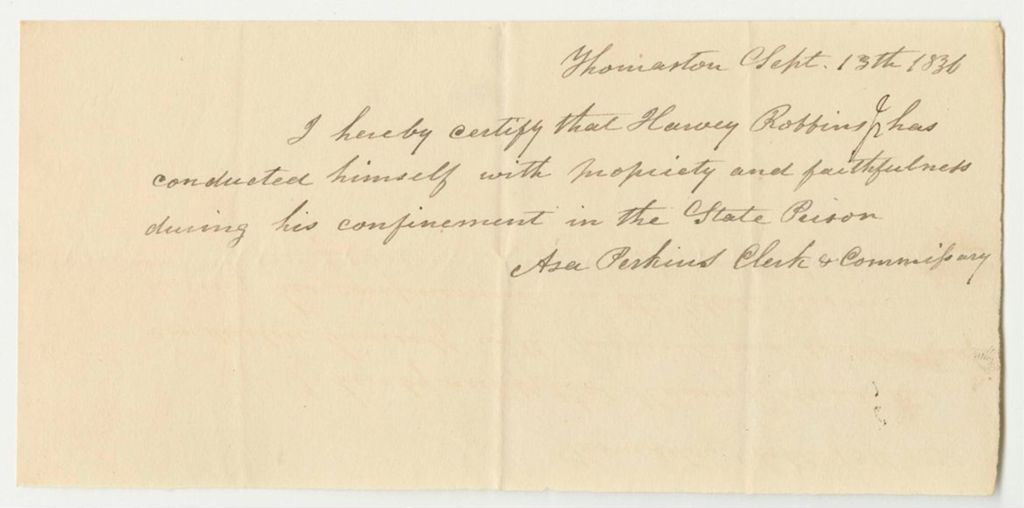 Thomaston Sept. 13th 1836
I hereby certify that Harvey Robbins Jr has
conducted himself with propriety and faithfulness
during his confinement in the State Prison
Asa Perkins Clerk & Commissary